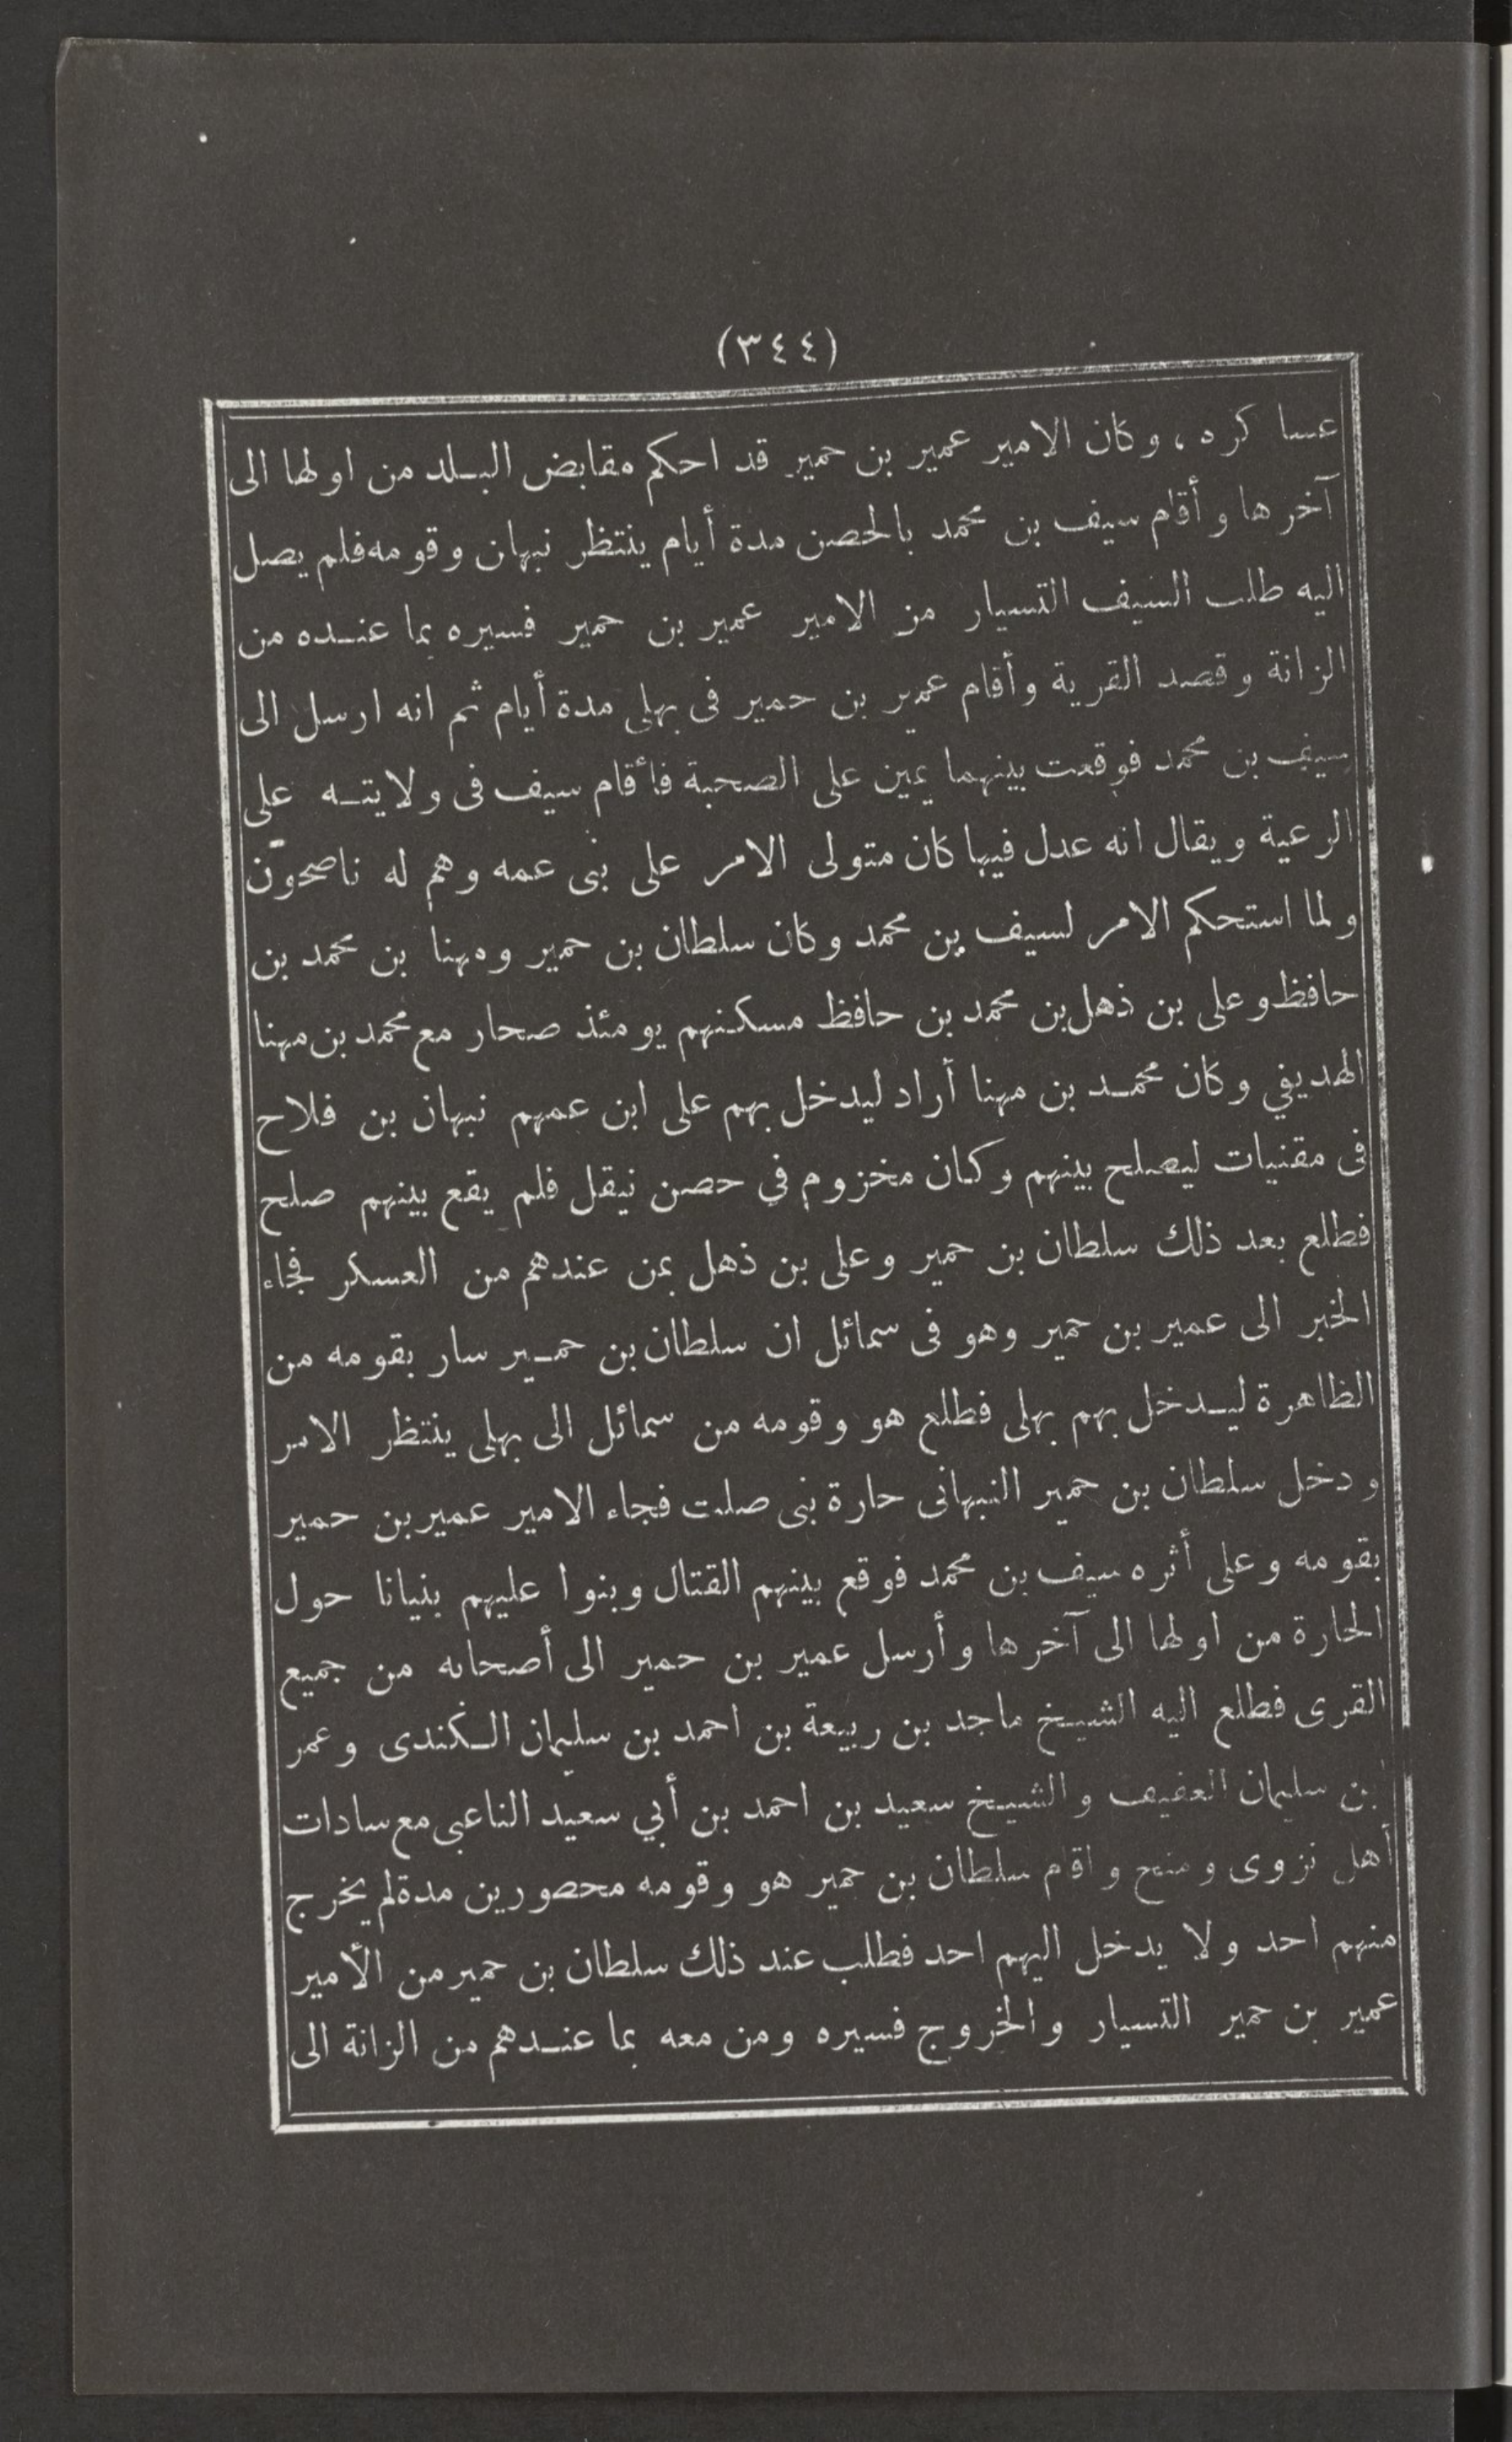 (٣٤٤)
عساكره ، وكان الامير عمير بن حمير قد احكم مقابض البلد من اولها الى
آخرها وأقام سيف بن محمد بالحصن مدة أيام ينتظر نبهان وقومه فلم يصل
اليه طلب السيف التسيار من الامير عمير بن حمير فسيره بما عنده من
الزانة وقصد القرية وأقام عمير بن حمير فى بهلى مدة أيام ثم انه ارسل الى
سيف بن محمد فوقعت بينهما يمين على الصحبة فأقام سيف فى ولايته على
الرعية ويقال انه عدل فيها كان متولى الامر على بنى عمه وهم له ناصحون
ولما استحكم الامر لسيف بن محمد وكان سلطان بن حمير ومهنا بن محمد بن
حافظ وعلى بن ذهل بن محمد بن حافظ مسكنهم يومئذ صحار مع محمد بن مهنا
الهديفي وكان محمد بن مهنا أراد ليدخل بهم على ابن عمهم نبهان بن فلاح
فى مقنيات ليصلح بينهم وكان مخزوم في حصن نيقل فلم يقع بينهم صلح
فطلع بعد ذلك سلطان بن حمير وعلى بن ذهل بمن عندهم من العسكر فجاء
الخبر الى عمير بن حمير وهو فى سمائل ان سلطان بن حمير سار بقومه من
الظاهرة ليدخل بهم بهلى فطلع هو وقومه من سمائل الى بهلى ينتظر الامر
ودخل سلطان بن حمير النبهانى حارة بنى صلت فجاء الامير عمير بن حمير
بقومه وعلى أثره سيف بن محمد فوقع بينهم القتال وبنوا عليهم بنيانا حول
الحارة من اولها الى آخرها وأرسل عمير بن حمير الى أصحابه من جميع
القرى فطلع اليه الشيخ ماجد بن ربيعة بن احمد بن سليمان الكندى وعمر
بن سليمان العفيف والشيخ سعيد بن احمد بن أبي سعيد الناعبى مع سادات
أهل نزوى ومنح واقام سلطان بن حمير هو وقومه محصورين مدة لم يخرج
منهم احد ولا يدخل اليهم احد فطلب عند ذلك سلطان بن حمير من الأمير
عمير بن حمير التسيار والخروج فسيره ومن معه بما عندهم من الزانة الى